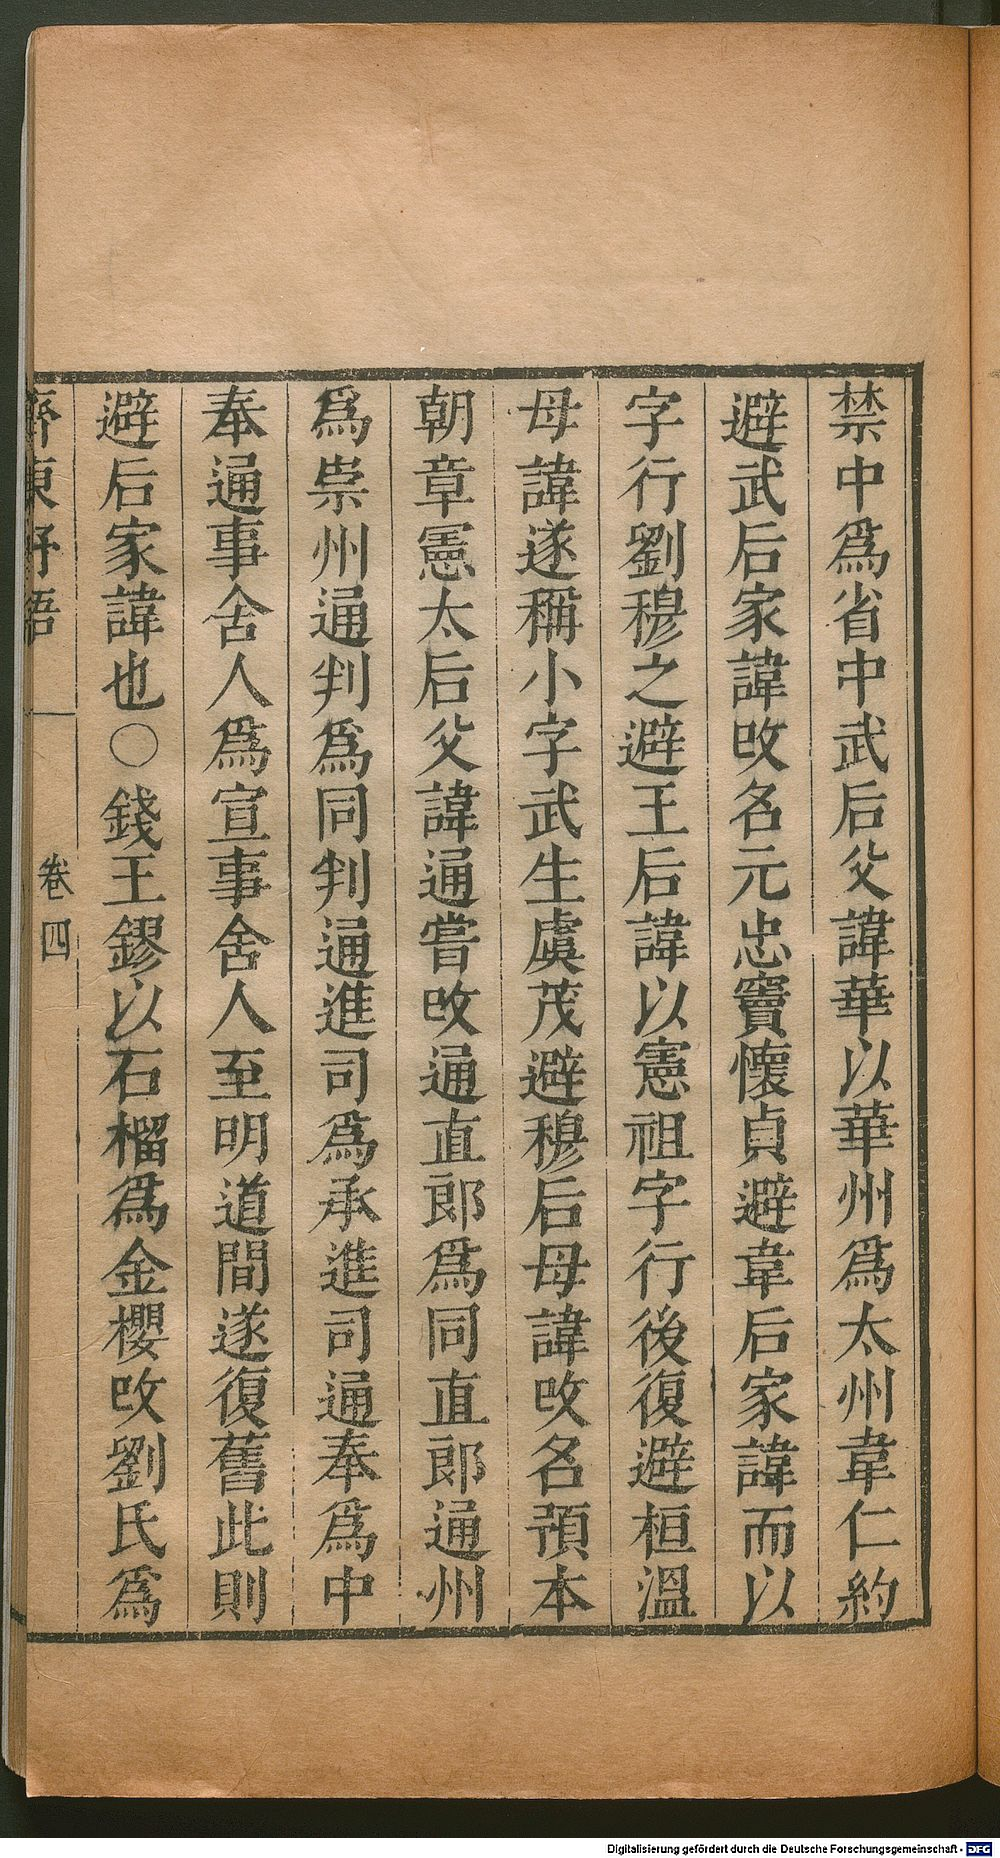 禁中爲省中武后父諱華以華州爲太州韋仁約
避武后家諱改名元忠竇懷貞避韋后家諱而以
字行劉穆之避王后諱以憲祖字行後復避桓溫
母諱遂稱小字武生虞茂避穆后母諱改名預本
朝章憲太后父諱通嘗改通直郎爲同直郎通州
爲崇州通判爲同判通進司爲承進司通奉爲中
奉通事舍人爲宣事舍人至明道間遂復舊此則
避后家諱也〇錢王鏐以石榴爲金櫻改劉氏爲
齊東野語 卷四
Digitalisierung gefördert durch die Deutsche Forschungsgemeinschaft - DFG